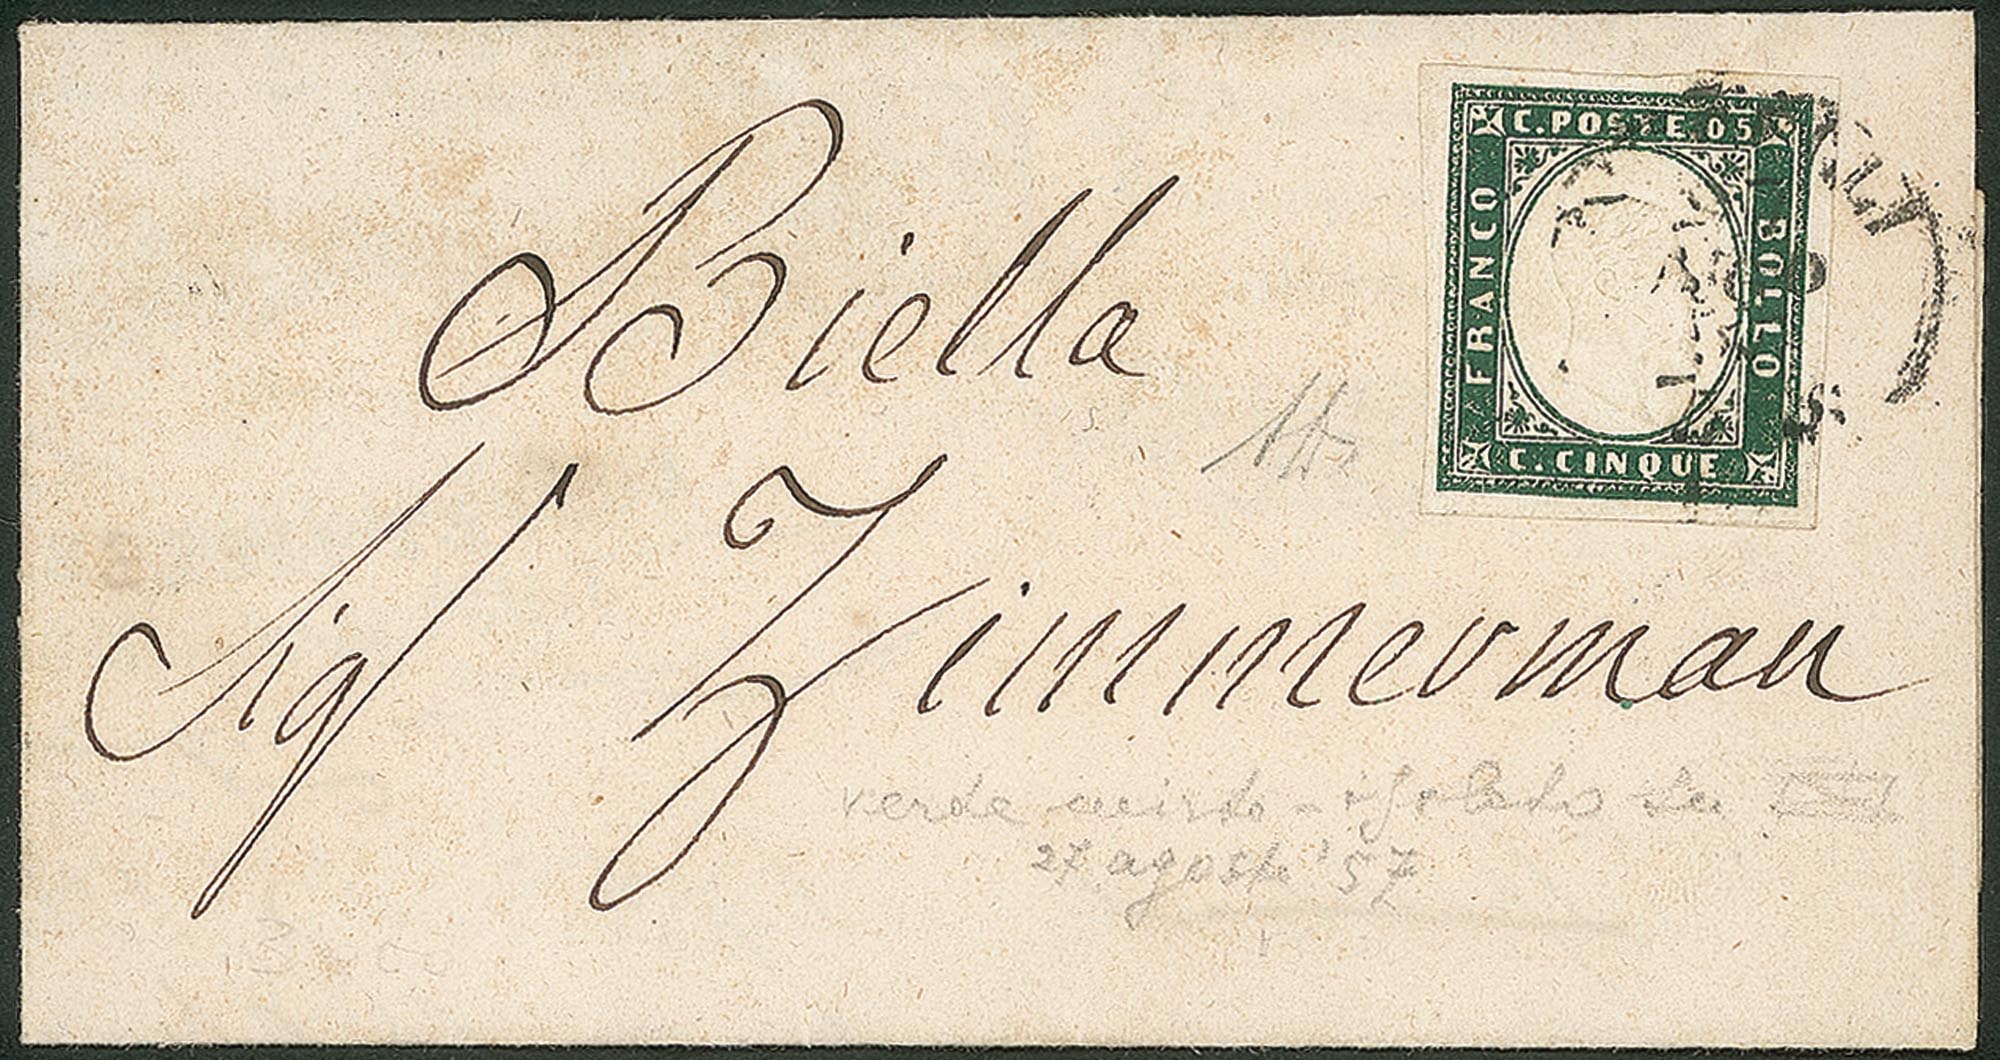 Biella
Sig Zimmerman
C. POSTE. 05
FRANCO
BOLLO
C. CINQUE
verde mirto - isolato su
27 agosto '57